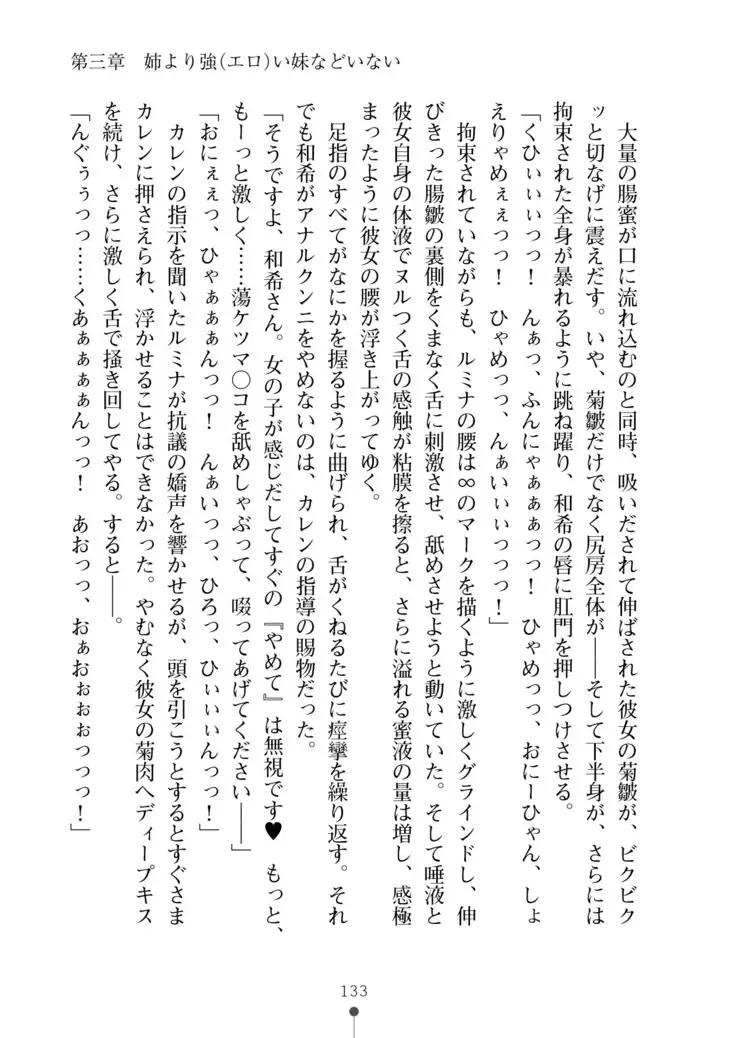 第三章　姉より強(エロ)い妹などいない
　大量の腸蜜が口に流れ込むのと同時、吸いだされて伸ばされた彼女の菊皺が、ビクビク
ッと切なげに震えだす。いや、菊皺だけでなく尻房全体が――そして下半身が、さらには
拘束された全身が暴れるように跳ね躍り、和希の唇に肛門を押しつけさせる。
「くひぃぃぃっっ！　んぁっ、ふんにゃぁぁぁっっ！　ひゃめっっ、おにーひゃん、しょ
えりゃめぇぇっっ！　ひゃめっっ、んぁいぃぃっっっ！」
　拘束されていながらも、ルミナの腰は∞のマークを描くように激しくグラインドし、伸
びきった腸皺の裏側をくまなく舌に刺激させ、舐めさせようと動いていた。そして唾液と
彼女自身の体液でヌルつく舌の感触が粘膜を擦ると、さらに溢れる蜜液の量は増し、感極
まったように彼女の腰が浮き上がってゆく。
　足指のすべてがなにかを握るように曲げられ、舌がくねるたびに痙攣を繰り返す。それ
でも和希がアナルクンニをやめないのは、カレンの指導の賜物だった。
「そうですよ、和希さん。女の子が感じだしてすぐの『やめて』は無視です♥　もっと、
もーっと激しく……蕩ケツマ〇コを舐めしゃぶって、啜ってあげてください――」
「おにぇぇっ、ひゃぁぁぁんっっ！　んぁいっっ、ひろっ、ひぃぃぃんっっ！」
　カレンの指示を聞いたルミナが抗議の嬌声を響かせるが、頭を引こうとするとすぐさま
カレンに押さえられ、浮かせることはできなかった。やむなく彼女の菊肉へディープキス
を続け、さらに激しく舌で掻き回してやる。すると――。
「んぐぅぅっっ……くあぁぁぁぁんっっ！　あおっっ、おぁおぉぉぉっっっ！」
133